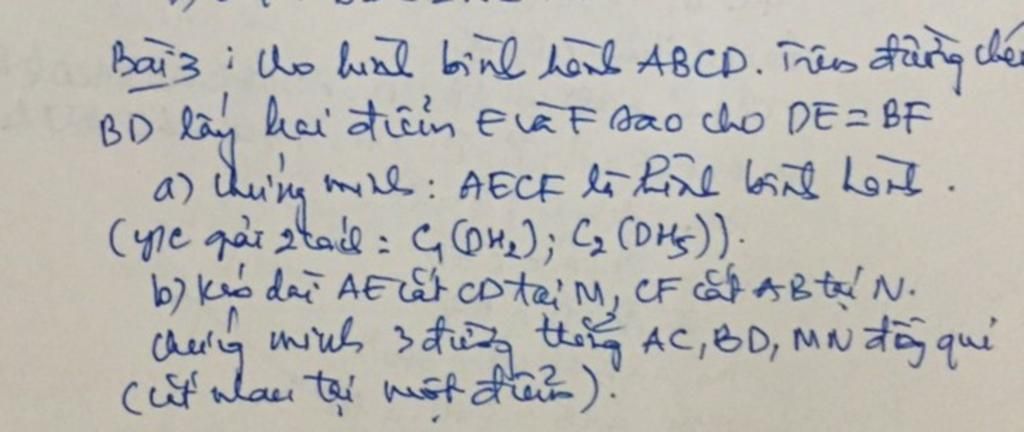 Bài 3 : Cho hình bình hành ABCD. Trên đường chéo
BD lấy hai điểm E và F sao cho DE = BF
a) Chứng minh : AECF là hình bình hành .
(y/c giải 2 cách : C₁ (DH₂) ; C₂ (DH₅)).
b) Kéo dài AE cắt CD tại M, CF cắt AB tại N.
chứng minh 3 đường thẳng AC, BD, MN đồng qui
(cắt nhau tại một điểm).